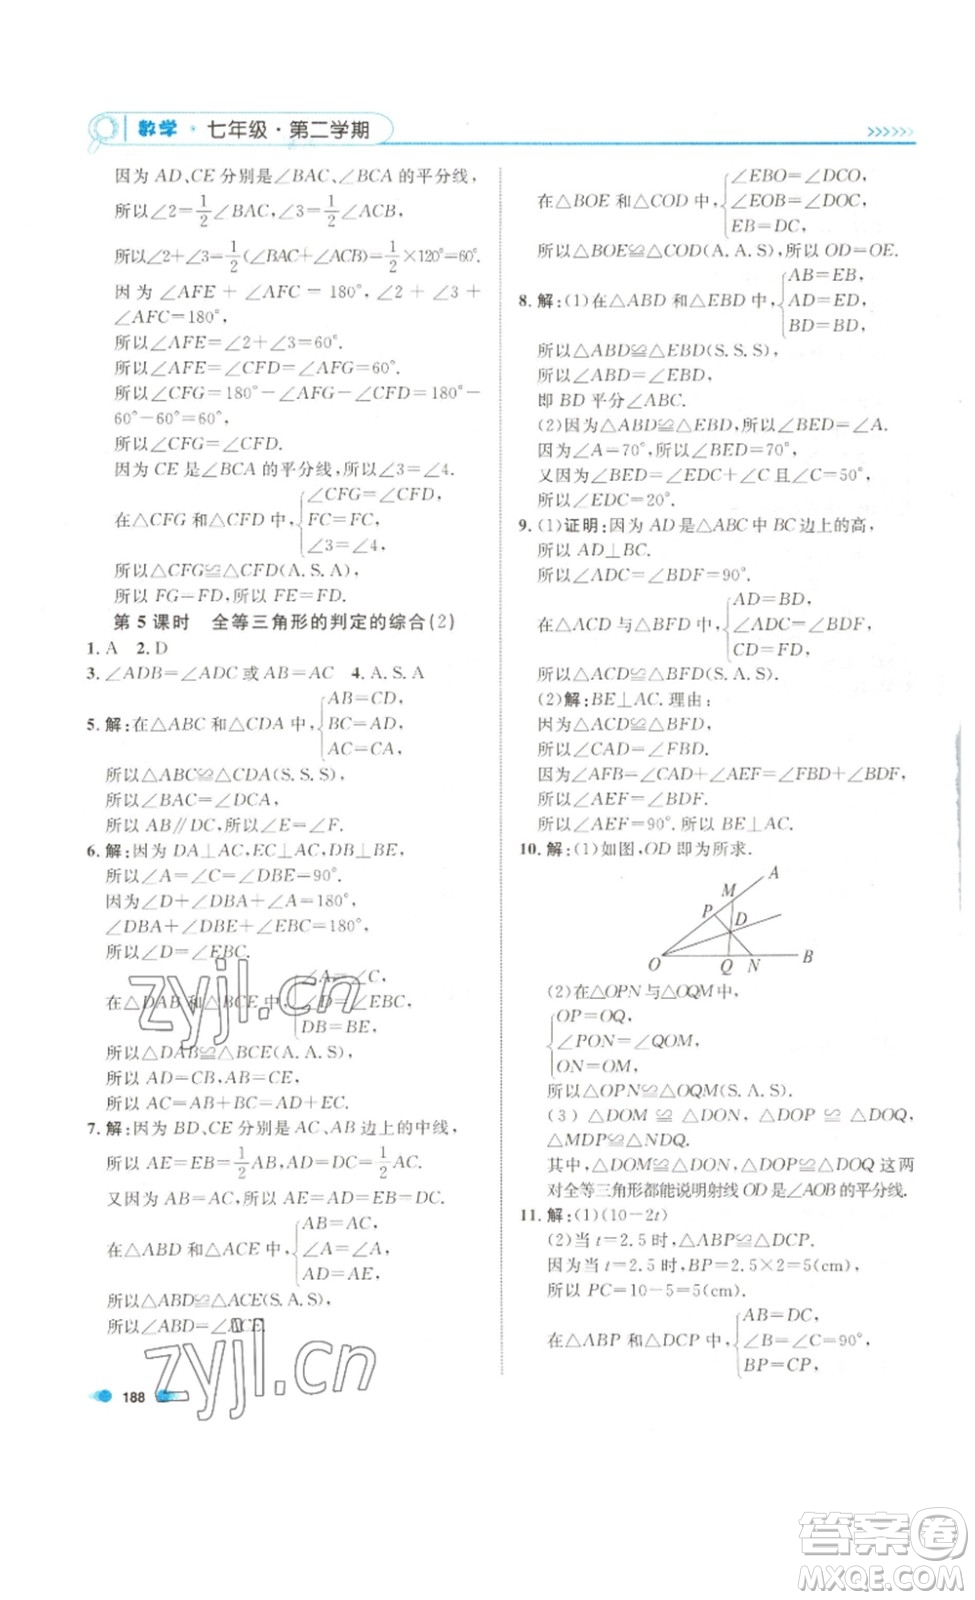 数学·七年级·第二学期
因为 AD、CE 分别是∠BAC、∠BCA 的平分线，
所以∠2=1/2∠BAC，∠3=1/2∠ACB，
所以∠2+∠3=1/2(∠BAC+∠ACB)=1/2×120°=60°.
因为 ∠AFE + ∠AFC = 180°，∠2 + ∠3 +
∠AFC=180°，
所以∠AFE=∠2+∠3=60°.
所以∠AFE=∠CFD=∠AFG=60°.
所以∠CFG=180°－∠AFG－∠CFD=180°－
60°－60°=60°，
所以∠CFG=∠CFD.
因为 CE 是∠BCA 的平分线，所以∠3=∠4.
在△CFG 和△CFD 中，{∠CFG=∠CFD，
FC=FC，
∠3=∠4，
所以△CFG≌△CFD(A.S.A)
所以 FG=FD，所以 FE=FD.
第 5 课时 全等三角形的判定的综合(2)
1. A 2. D
3. ∠ADB=∠ADC 或 AB=AC 4. A.S.A
5. 解:在△ABC 和△CDA 中，{AB=CD，
BC=AD，
AC=CA，
所以△ABC≌△CDA(S.S.S)，
所以∠BAC=∠DCA，
所以 AB∥DC，所以∠E=∠F.
6. 解:因为 DA⊥AC，EC⊥AC，DB⊥BE，
所以∠A=∠C=∠DBE=90°.
因为∠D+∠DBA+∠A=180°，
∠DBA+∠DBE+∠EBC=180°，
所以∠D=∠EBC.
在△DAB 和△BCE 中，{∠A=∠C，
∠D=∠EBC，
DB=BE，
所以△DAB≌△BCE(A.A.S)
所以 AD=CB，AB=CE，
所以 AC=AB+BC=AD+CE.
7. 解:因为 BD、CE 分别是 AC、AB 边上的中线，
所以 AE=EB=1/2AB，AD=DC=1/2AC，
又因为 AB=AC，所以 AE=AD=EB=DC.
在△ABD 和△ACE 中，{AB=AC，
∠A=∠A，
AD=AE，
所以△ABD≌△ACE(S.A.S)
所以∠ABD=∠ACE.
188
在△BOE 和△COD 中，{∠EBO=∠DCO，
∠EOB=∠DOC，
EB=DC，
所以△BOE≌△COD(A.A.S)，所以 OD=OE.
8. 解:(1)在△ABD 和△EBD 中，{AB=EB，
AD=ED，
BD=BD，
所以△ABD≌△EBD(S.S.S)，
所以∠ABD=∠EBD，
即 BD 平分∠ABC.
(2)因为△ABD≌△EBD，所以∠BED=∠A.
因为∠A=70°，所以∠BED=70°，
又因为∠BED=∠EDC+∠C 且∠C=50°，
所以∠EDC=20°.
9. (1)证明:因为 AD 是△ABC 中 BC 边上的高，
所以 AD⊥BC.
所以∠ADC=∠BDF=90°.
在△ACD 与△BFD 中，{AD=BD，
∠ADC=∠BDF，
CD=FD，
所以△ACD≌△BFD(S.A.S)
(2)解:BE⊥AC. 理由:
因为△ACD≌△BFD，
所以∠CAD=∠FBD.
因为∠AFB=∠CAD+∠AEF=∠FBD+∠BDF，
所以∠AEF=∠BDF.
所以∠AEF=90°. 所以 BE⊥AC.
10. 解:(1)如图，OD 即为所求.
A
M
P
D
O
Q
N
B
(2)在△OPN 与△OQM 中，
{OP=OQ，
∠PON=∠QOM，
ON=OM，
所以△OPN≌△OQM(S.A.S)
(3) △DOM ≌ △DON，△DOP ≌ △DOQ，
△MDP≌△NDQ.
其中，△DOM≌△DON，△DOP≌△DOQ 这两
对全等三角形都能说明射线 OD 是∠AOB 的平分线.
11. 解:(1)(10－2t)
(2)当 t=2.5 时，△ABP≌△DCP.
因为当 t=2.5 时，BP=2.5×2=5(cm)
所以 PC=10－5=5(cm)
在△ABP 和△DCP 中，{AB=DC，
∠B=∠C=90°，
BP=CP，
zyjl.cn
zyjl.cn
答案卷
MXQE.COM